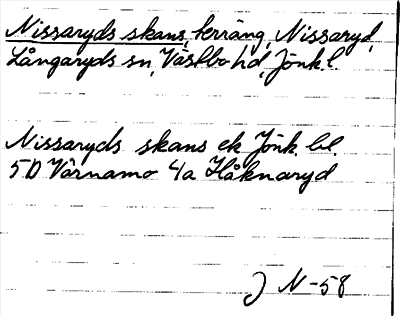 Nissaryds skans, terräng, Nissaryd,
Långaryds sn, Västbo hd, Jönk l.
Nissaryds skans ek Jönk. bl.
5D Värnamo 4a Håknaryd
J N-58